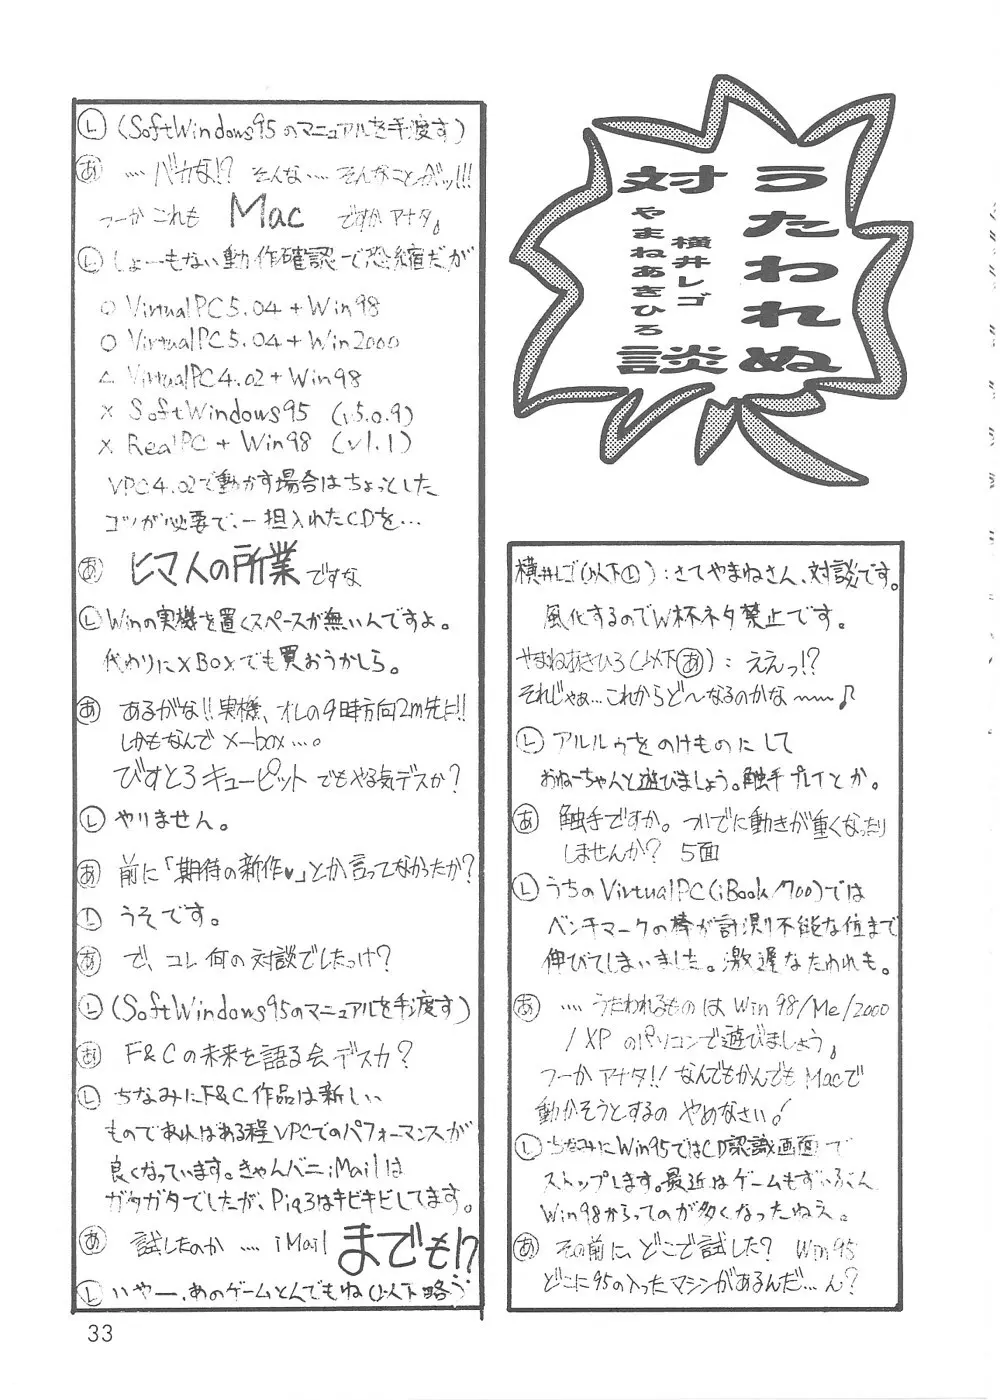 うたわれぬ
対談
横井レゴ
やまねあきひろ
横井レゴ(以下Ⓛ):さてやまねさん、対談です。
風化するのでW杯ネタ禁止です。
やまねあきひろ(以下あ): ええっ!?
それじゃぁ…これからど〜なるのかな〜〜♪
Ⓛ アルルゥをのけものにして
おねーちゃんと遊びましょう。触手プレイとか。
あ 触手ですか。ついでに動きが重くなったり
しませんか? 5面
Ⓛ うちのVirtualPC(iBook/700)では
ベンチマークの棒が計測不能な位まで
伸びてしまいました。激遅なたわれも。
あ ‥‥うたわれるものは Win 98/Me/2000
/XP のパソコンで遊びましょう。
つーか アナタ!! なんでもかんでもMacで
動かそうとするの やめなさい!
Ⓛ ちなみにWin95ではCD認識画面で
ストップします。最近はゲームもずいぶん
Win98からってのが多くなったねえ。
あ その前に、どこで試した? Win95
どこに95の入ったマシンがあるんだ…ん?
Ⓛ (SoftWindows95のマニュアルを手渡す)
あ ‥‥バカな!? そんな‥‥そんなことがッ!!!
つーか これも Mac ですか アナタ。
Ⓛ しょーもない動作確認で恐縮だが
○ VirtualPC5.04+Win98
○ VirtualPC5.04+Win2000
△ VirtualPC4.02+Win98
× SoftWindows95 (v5.0.9)
× RealPC+Win98 (v1.1)
VPC4.02で動かす場合はちょっとした
コツが必要で、一担入れたCDを…
あ ヒマ人の所業ですな
Ⓛ Winの実機を置くスペースが無いんですよ。
代わりにXBoxでも買おうかしら。
あ あるがな!!実機、オレの9時方向2m先に!!
しかもなんで X-box…。
びすとろキューピット でもやる気デスか?
Ⓛ やりません。
あ 前に「期待の新作♥」とか言ってなかったか?
Ⓛ うそです。
あ で、コレ何の対談でしたっけ?
Ⓛ (SoftWindows95のマニュアルを手渡す)
あ F&Cの未来を語る会デスカ?
Ⓛ ちなみにF&C作品は新しい
ものであればある程VPCでのパフォーマンスが
良くなっています。きゃんバニiMailは
ガタガタでしたが、Pia3はキビキビしてます。
あ 試したのか‥‥iMail までも!?
Ⓛ いやー、あのゲームとんでもね(以下略)
33